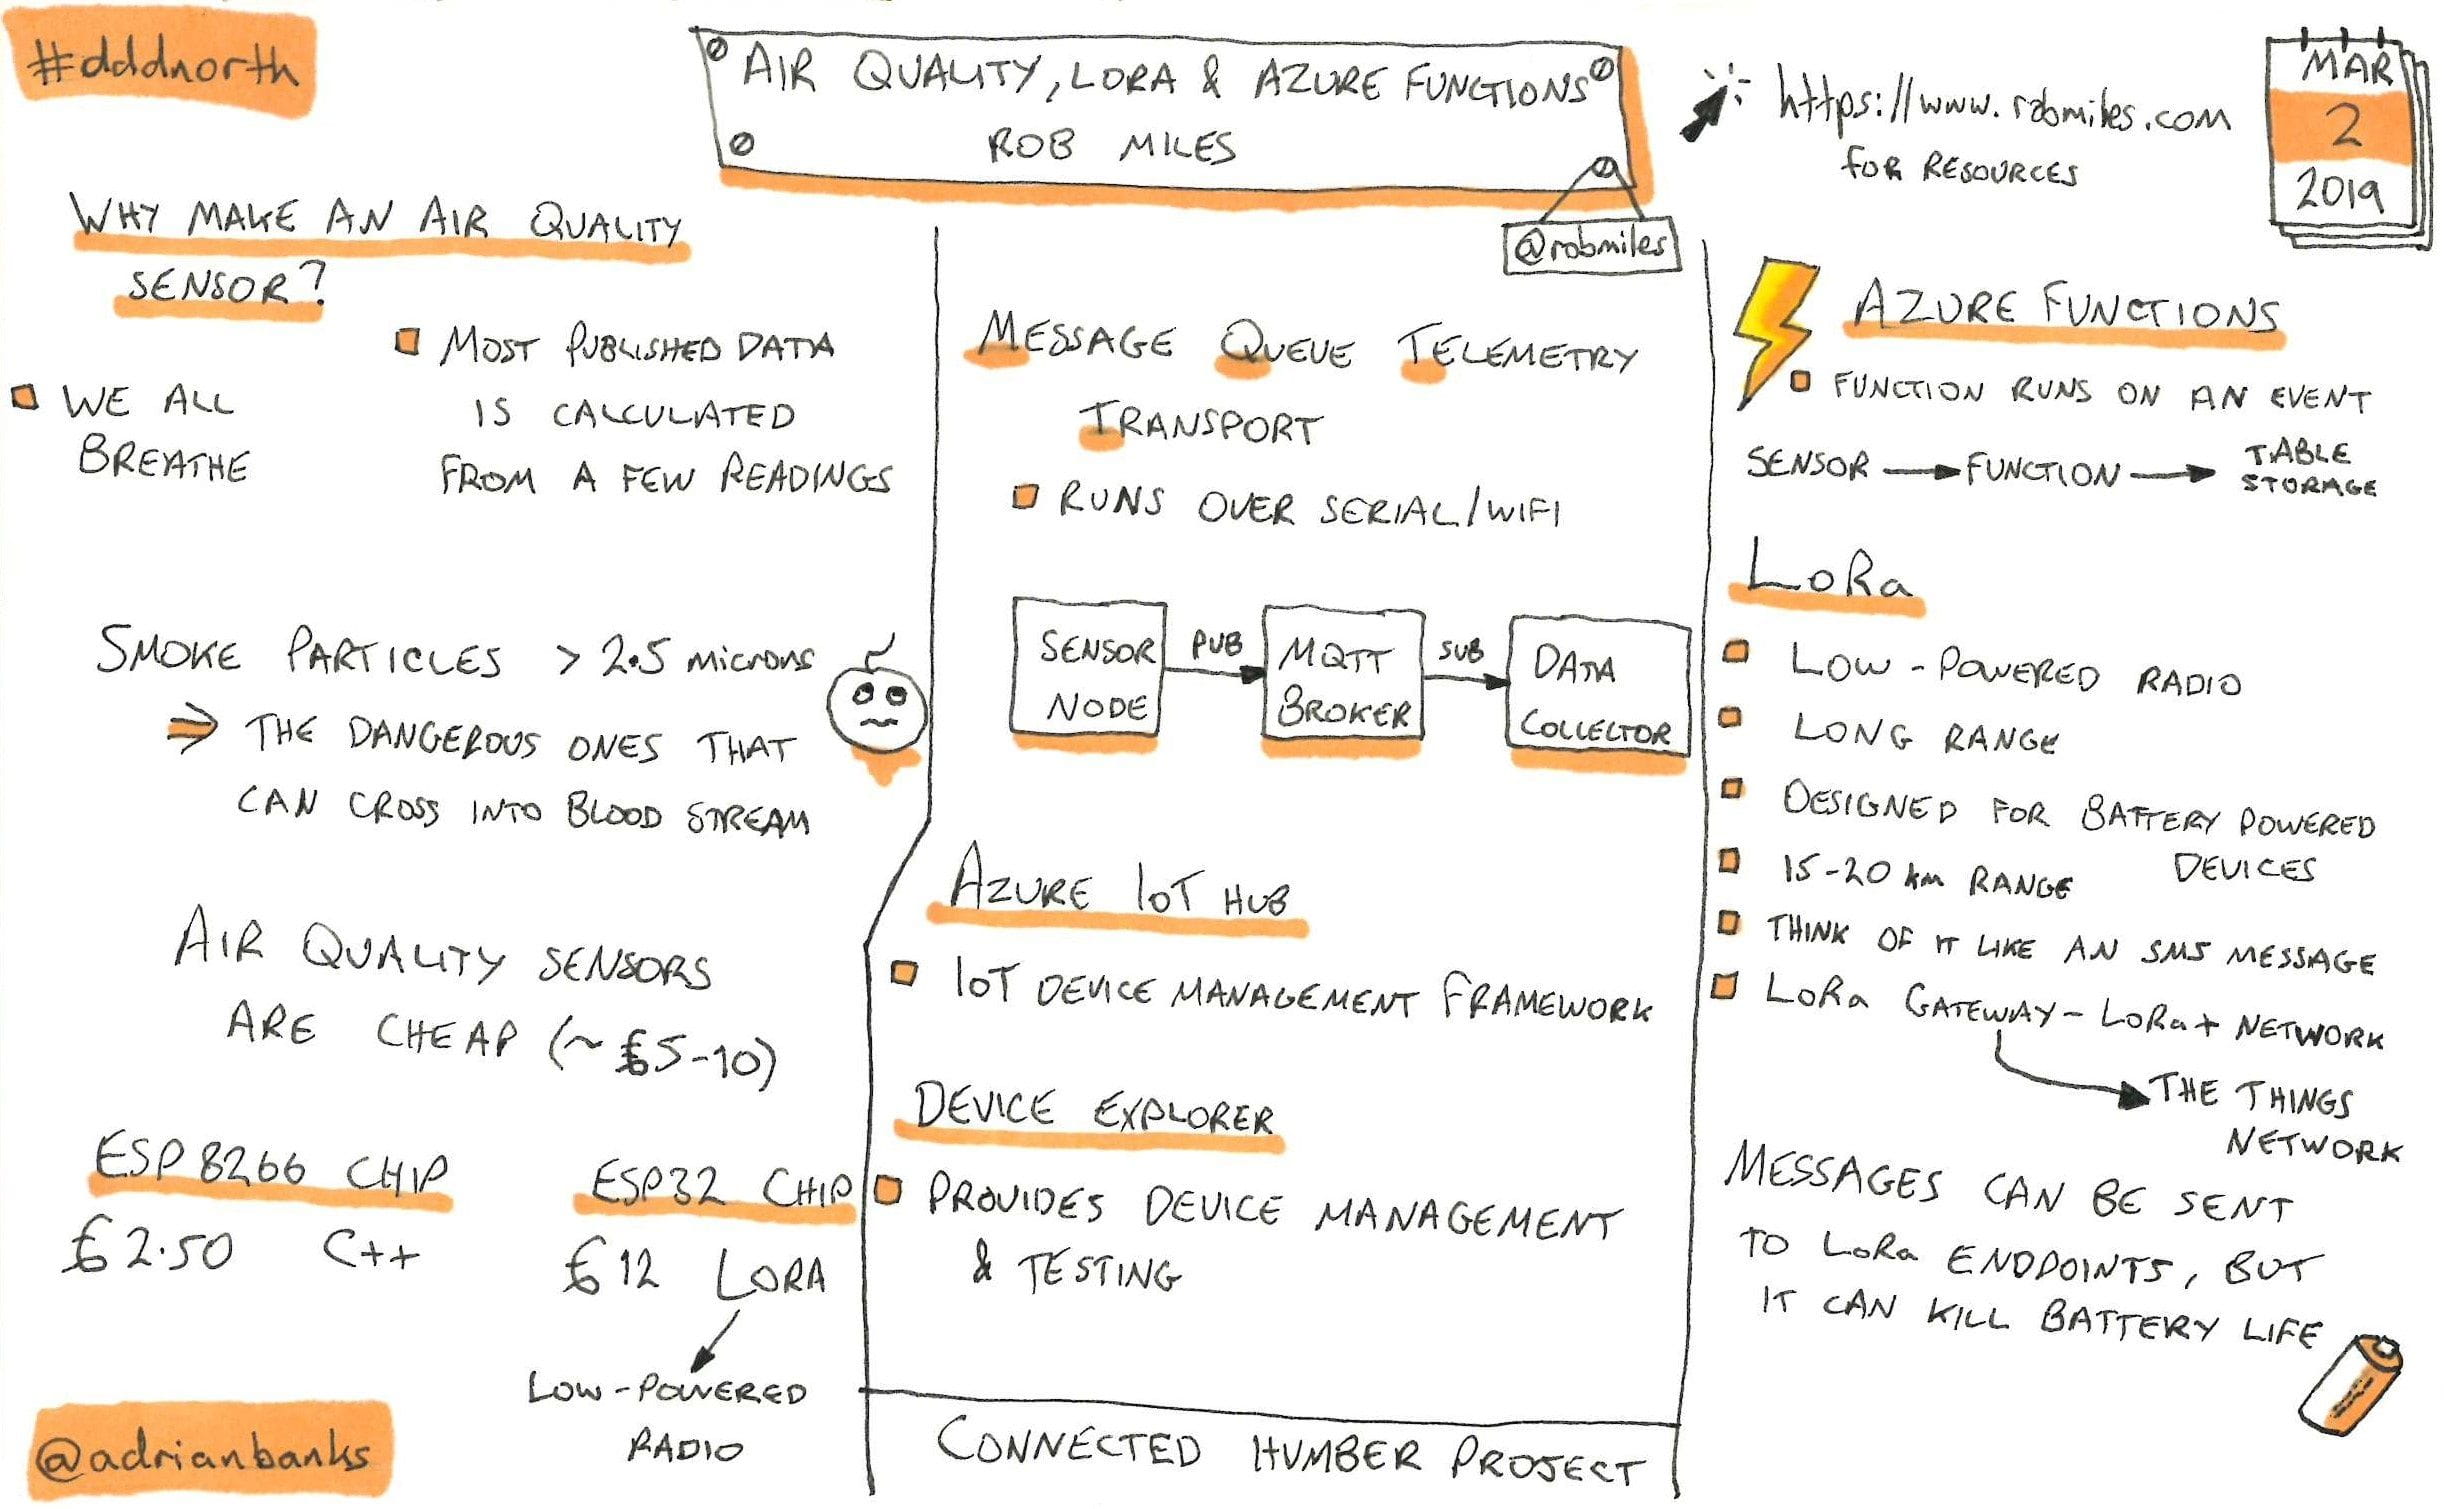 #dddnorth
AIR QUALITY, LORA & AZURE FUNCTIONS
ROB MILES
@robmiles
https://www.robmiles.com
FOR RESOURCES
MAR
2
2019
WHY MAKE AN AIR QUALITY
SENSOR?
WE ALL
BREATHE
MOST PUBLISHED DATA
IS CALCULATED
FROM A FEW READINGS
SMOKE PARTICLES > 2.5 microns
⇒ THE DANGEROUS ONES THAT
CAN CROSS INTO BLOOD STREAM
AIR QUALITY SENSORS
ARE CHEAP (~£5-10)
ESP8266 CHIP
£2.50 C++
ESP32 CHIP
£12 LORA
LOW-POWERED
RADIO
@adrianbanks
MESSAGE QUEUE TELEMETRY
TRANSPORT
RUNS OVER SERIAL/WIFI
SENSOR
NODE
PUB
MQTT
BROKER
SUB
DATA
COLLECTOR
AZURE IoT HUB
IoT DEVICE MANAGEMENT FRAMEWORK
DEVICE EXPLORER
PROVIDES DEVICE MANAGEMENT
& TESTING
CONNECTED HUMBER PROJECT
AZURE FUNCTIONS
FUNCTION RUNS ON AN EVENT
SENSOR → FUNCTION → TABLE
STORAGE
LoRa
LOW-POWERED RADIO
LONG RANGE
DESIGNED FOR BATTERY POWERED
DEVICES
15-20 km RANGE
THINK OF IT LIKE AN SMS MESSAGE
LoRa GATEWAY - LoRa + NETWORK
THE THINGS
NETWORK
MESSAGES CAN BE SENT
TO LoRa ENDPOINTS, BUT
IT CAN KILL BATTERY LIFE